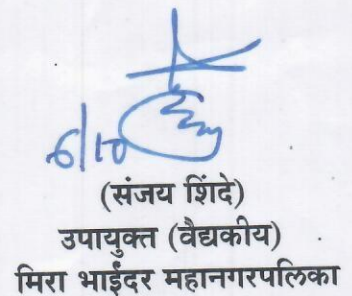 6/10
(संजय शिंदे)
उपायुक्त (वैद्यकीय)
मिरा भाईंदर महानगरपलिका